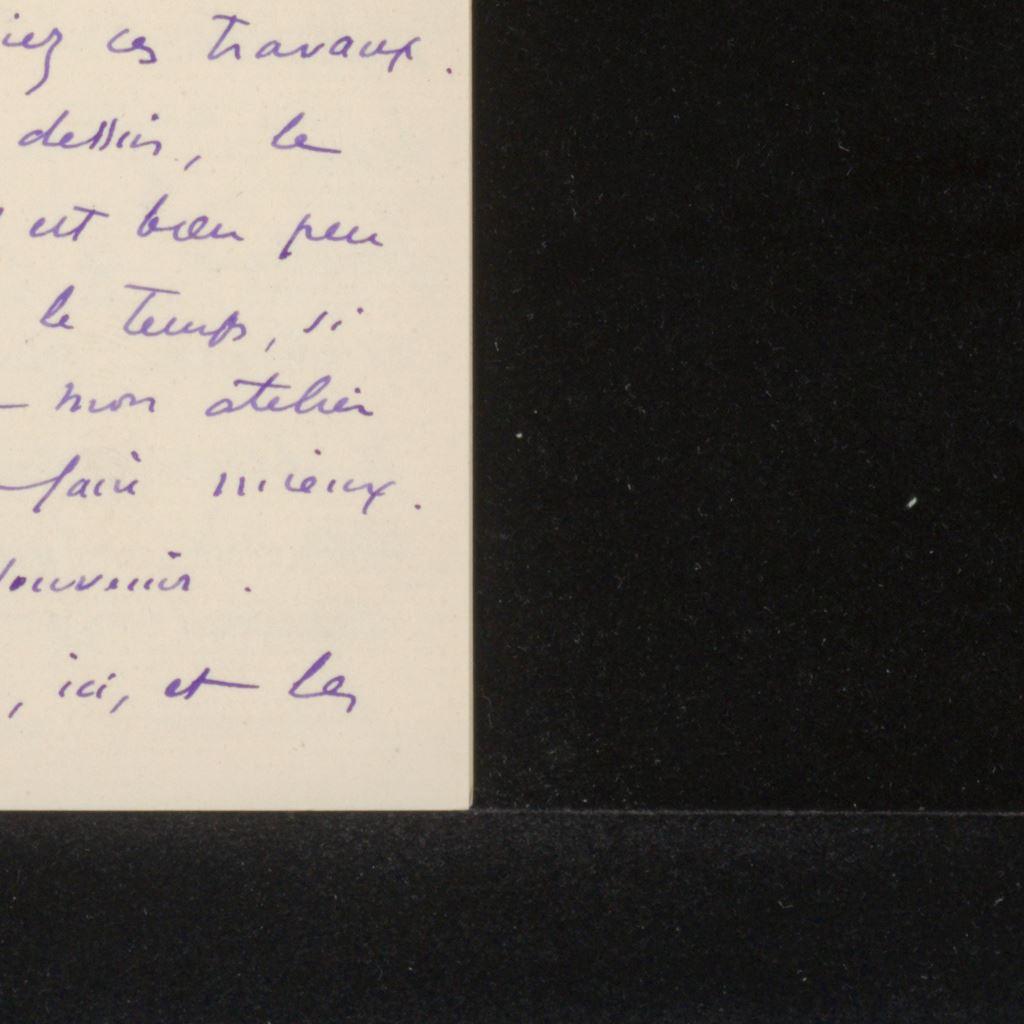 iez ces travaux.
dessin, le
est bien peu
le temps, si
mon atelier
faire mieux.
souvenir.
, ici, et les